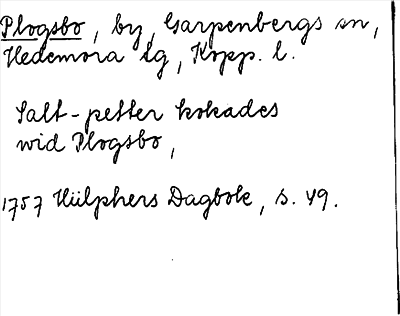 Plogsbo, by, Garpenbergs sn,
Hedemora tg, Kopp. l.
Salt-petter kokades
wid Plogsbo,
1757 Hülphers Dagbok, s. 49.